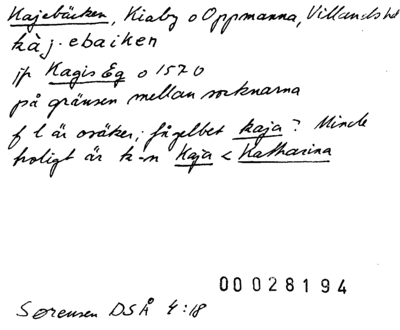 Kajebäcken, Kiaby o Oppmanna, Villands hd
kàj.ebaiken
jfr Kagis Eg o 1570
på gränsen mellan socknarna
f l är osäker; fågelbet kaja? Mindre
troligt är k-n Kaja < Katharina
00028194
Sørensen DSÅ 4:18